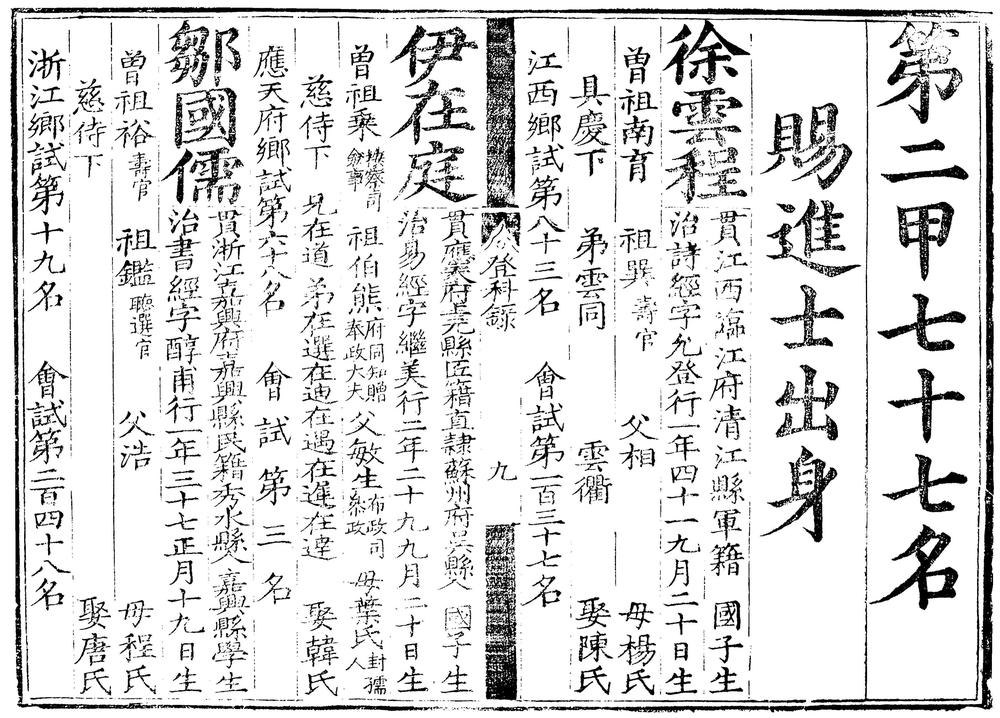 第二甲七十七名
賜進士出身
徐雲程
貫江西臨江府清江縣軍籍 國子生
治詩經字允登行一年四十一九月二十日生
曾祖南育 祖巽壽官 父相 母楊氏
具慶下 弟雲同 雲衢 娶陳氏
江西鄉試第八十三名 會試第一百三十七名
登科錄 九
伊在庭
貫應天府上元縣匠籍直隸蘇州府吳縣人 國子生
治易經字繼美行二年二十九九月二十日生
曾祖乘按察司僉事 祖伯熊府同知贈奉政大夫 父敏生布政司參政 母葉氏封孺人
慈侍下 兄在道 弟在選在迪在遇在運在達 娶韓氏
應天府鄉試第六十八名 會試第三名
鄒國儒
貫浙江嘉興府嘉興縣民籍秀水縣人嘉興縣學生
治書經字醇甫行一年三十七正月十九日生
曾祖裕壽官 祖鑑聽選官 父浩 母程氏
慈侍下 娶唐氏
浙江鄉試第十九名 會試第二百四十八名